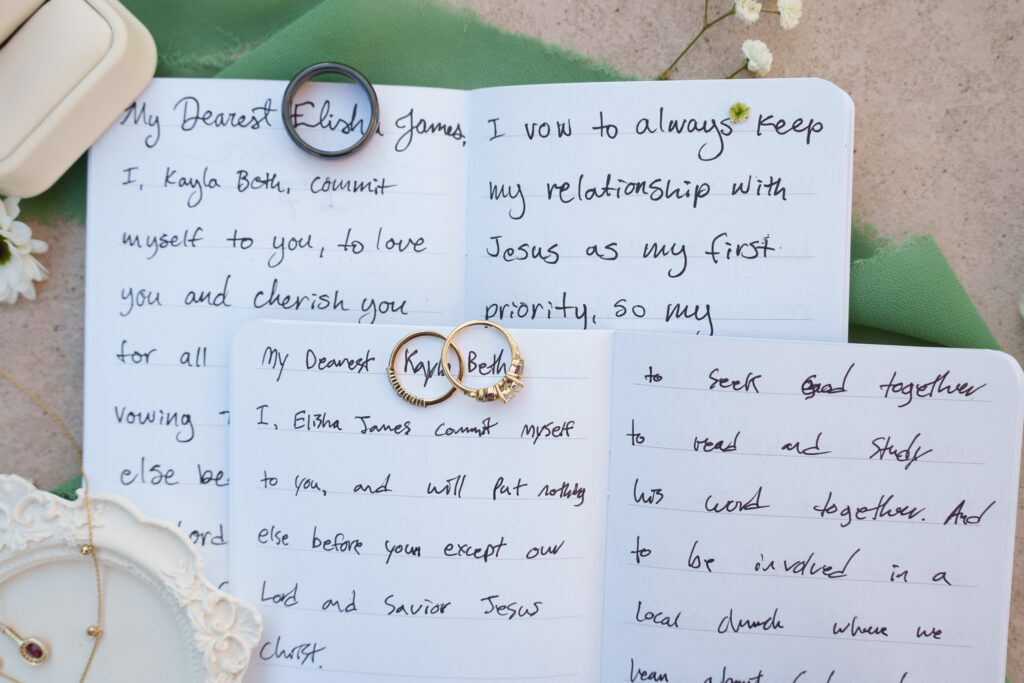 My Dearest Elisha James,
I, Kayla Beth, commit
myself to you, to love
you and cherish you
for all
vowing
else be
ord
I vow to always keep
my relationship with
Jesus as my first
priority, so my
My Dearest Kayla Beth
I, Elisha James commit myself
to you, and will put nothing
else before you except our
Lord and Savior Jesus
Christ.
to seek God together
to read and study
his word together. And
to be involved in a
local church where we
learn about